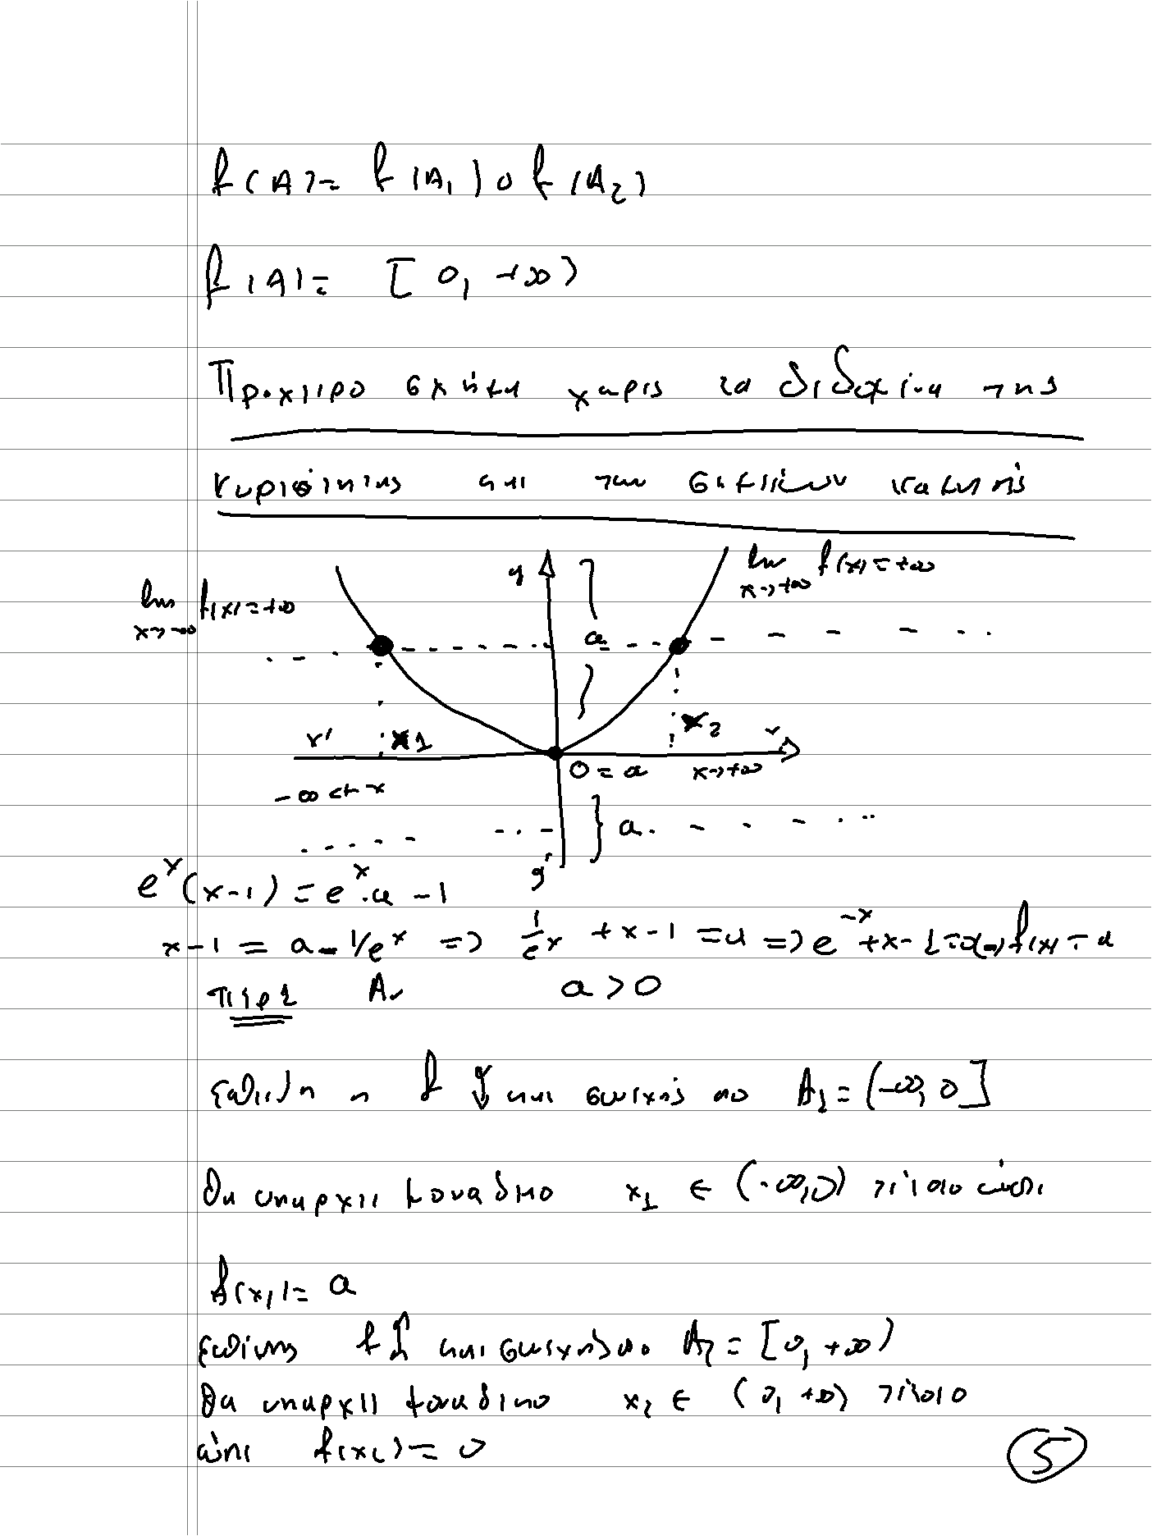 f(A)= f(A₁) ∪ f(A₂)
f(A)= [0, +∞)
Προχειρο σχημα χαρις τα δεδομενα της
κυριοτητας και των
lim f(x)=+∞
x→-∞
y
lim f(x)=+∞
x→+∞
a
x' x₁ x₂ x
0=a x→+∞
-∞ ← x
a.
y'
eˣ(x-1)=eˣ.a -1
x-1 = a-1/eˣ => 1/eˣ +x-1 =a => e⁻ˣ+x-1=a => f(x)=a
περ1 Αν a>0
επειδη η f ↓ και συνεχης στο A₁=(-∞, 0]
θα υπαρχει μοναδικο x₁ ∈ (-∞,0) τετοιο ώστε
f(x₁)= a
επισης f↑ και συνεχης στο A₂=[0, +∞)
θα υπαρχει μοναδικο x₂ ∈ (0, +∞) τετοιο
ώστε f(x₂)= 0
5